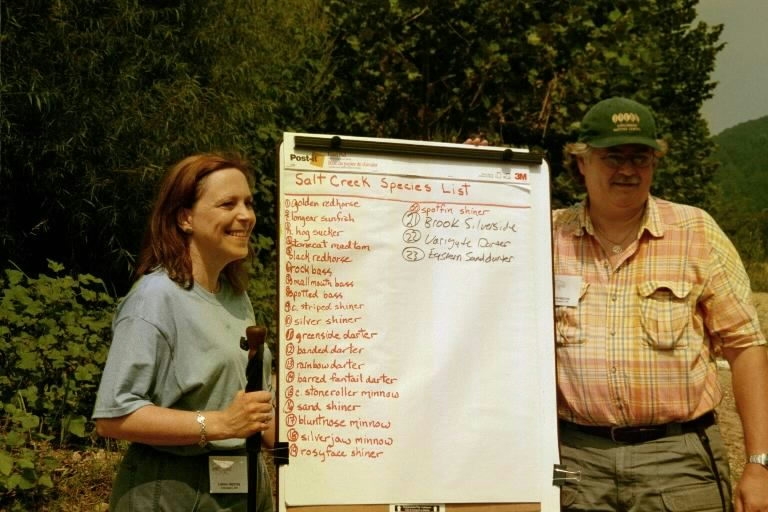 Post-it
3M
Salt Creek Species List
① golden redhorse
longear sunfish
n. hog sucker
stonecat madtom
black redhorse
rock bass
smallmouth bass
spotted bass
c. striped shiner
⑩ silver shiner
⑪ greenside darter
⑫ banded darter
⑬ rainbow darter
⑭ barred fantail darter
⑮ c. stoneroller minnow
⑯ sand shiner
⑰ bluntnose minnow
⑱ silverjaw minnow
⑲ rosyface shiner
⑳ spotfin shiner
㉑ Brook Silverside
㉒ Varigate Darter
㉓ Eastern Sand darter